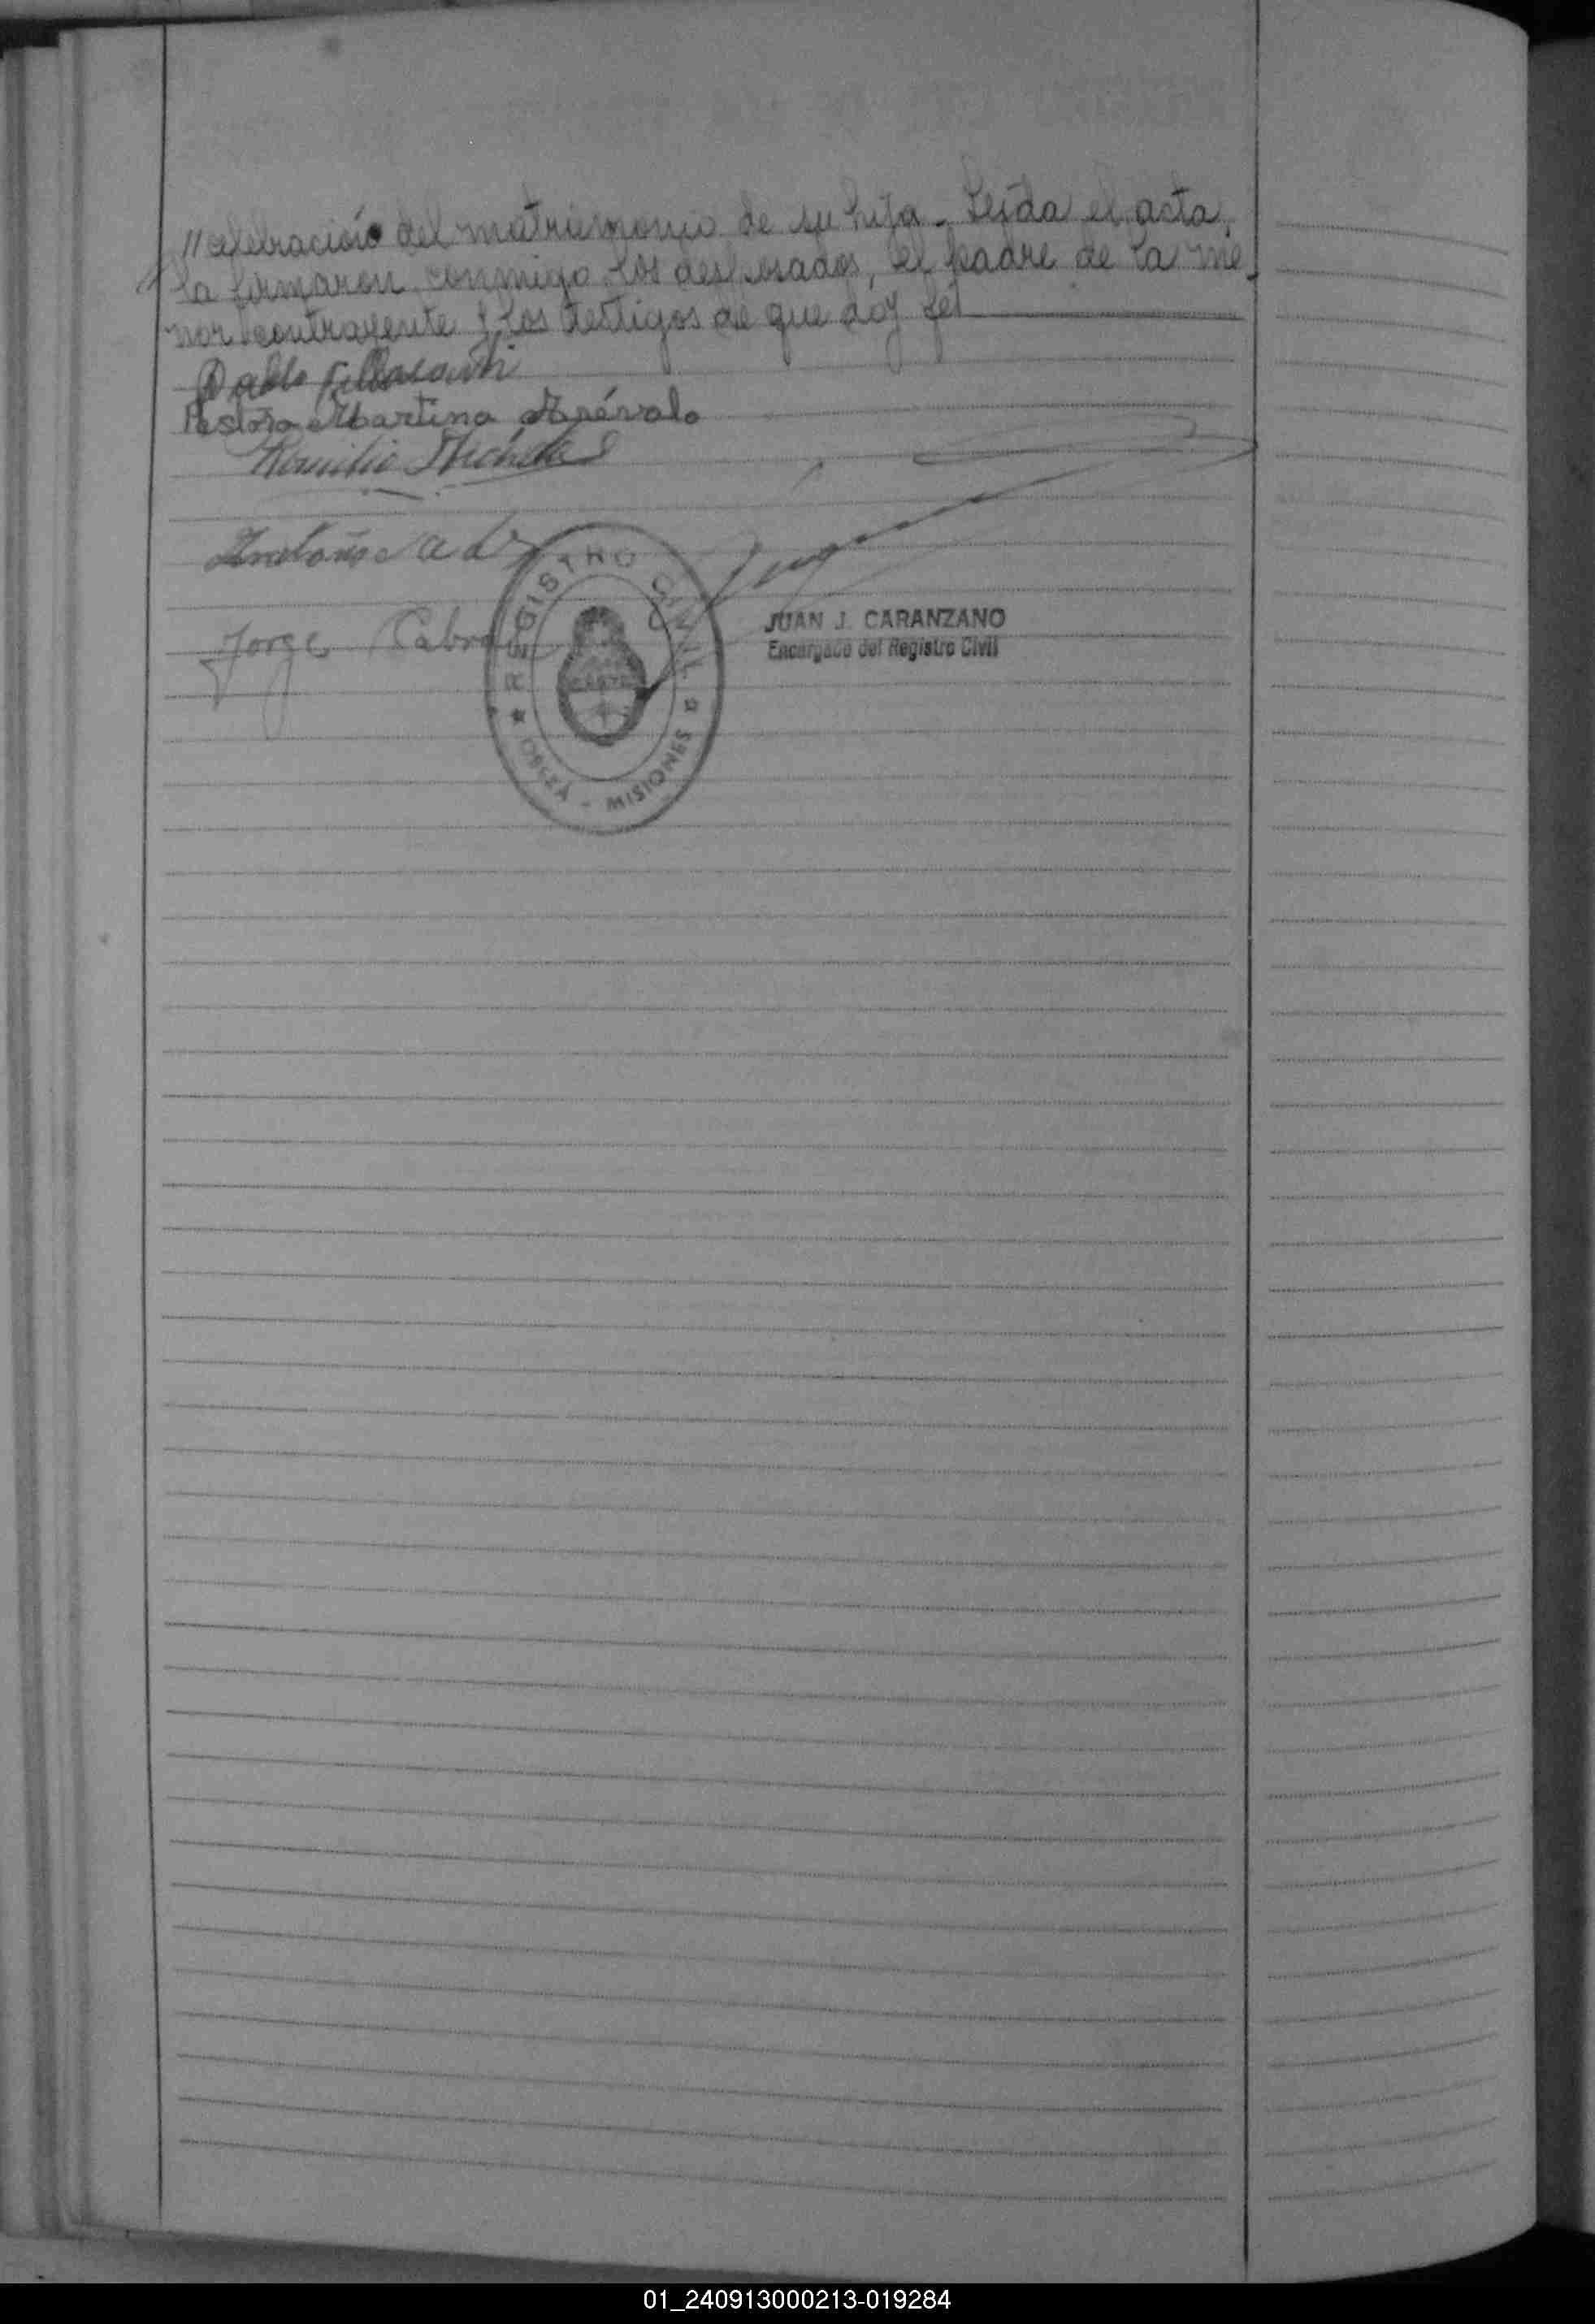 //celebración del matrimonio de su hija - Leída el acta,
la firmaron conmigo los desposados, el padre de la me-
nor contrayente y los testigos de que doy fé!
Pablo
Pastora Martina Arévalo
Jorge Cabral
REGISTRO CIVIL
OBERÁ - MISIONES
JUAN J. CARANZANO
Encargado del Registro Civil
01_240913000213-019284